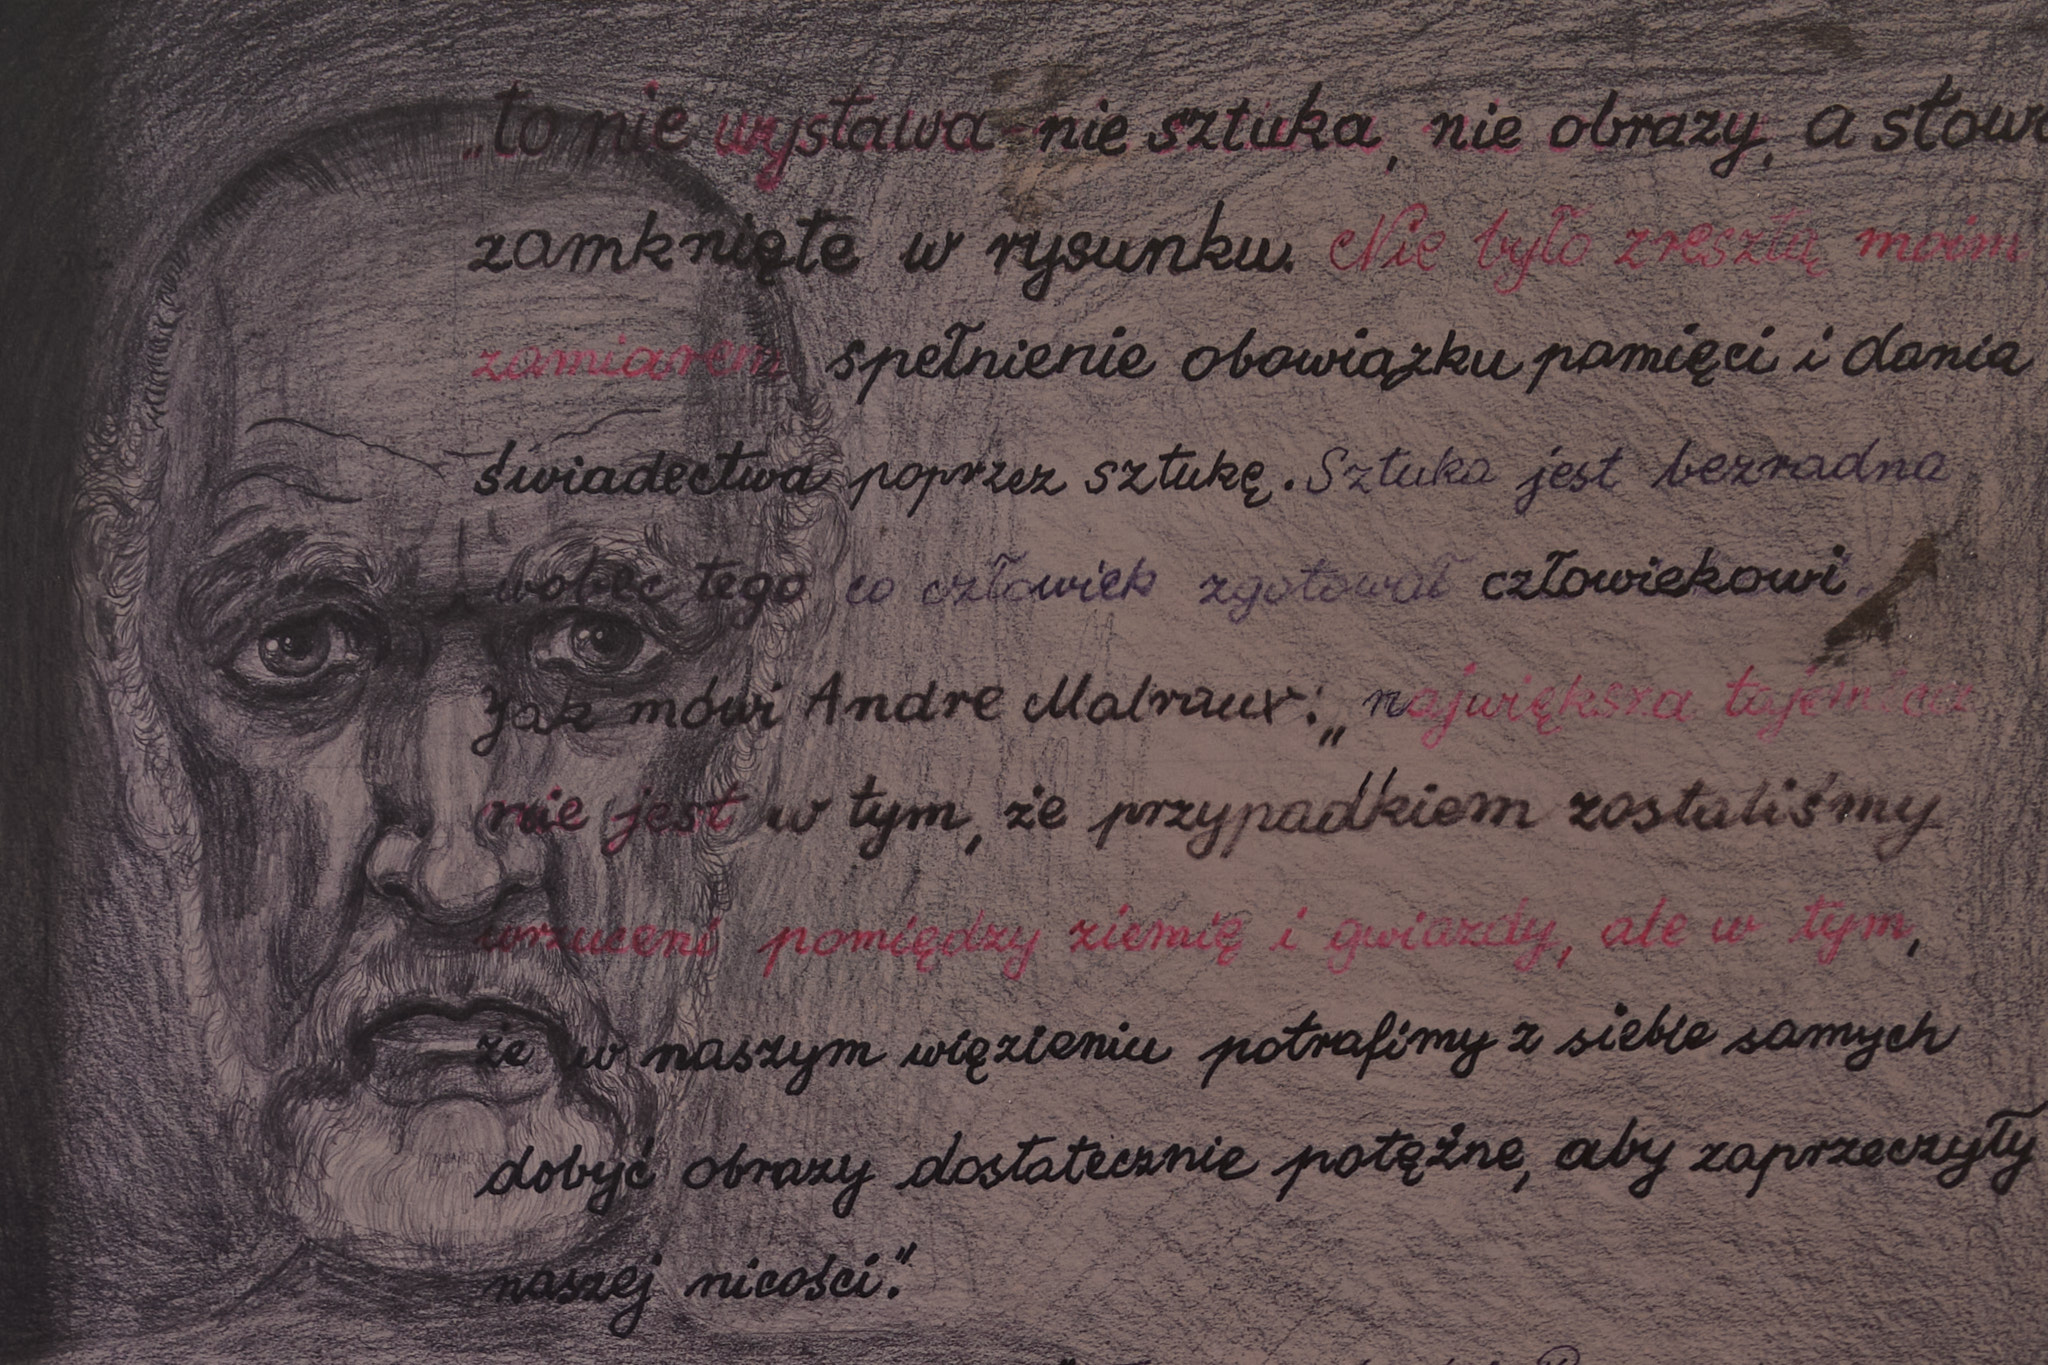 „to nie wystawa nie sztuka, nie obrazy, a słowa
zamknięte w rysunku. Nie było zresztą moim
zamiarem spełnienie obowiązku pamięci i dania
świadectwa poprzez sztukę. Sztuka jest bezradna
wobec tego co człowiek zgotował człowiekowi.
Jak mówi Andre Malraux: „największa tajemnica
nie jest w tym, że przypadkiem zostaliśmy
wrzuceni pomiędzy ziemię i gwiazdy, ale w tym,
że w naszym więzieniu potrafimy z siebie samych
dobyć obrazy dostatecznie potężne, aby zaprzeczyły
naszej nicości."